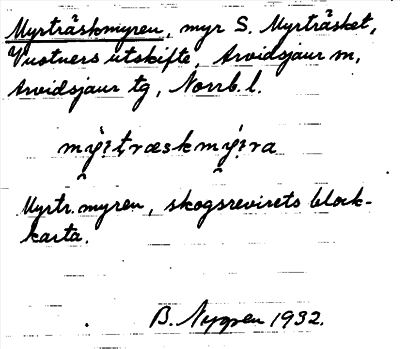 Myrträskmyren, myr S. Myrträsket,
Vuotners utskifte, Arvidsjaur sn,
Arvidsjaur tg, Norrb. l.
Myrtr.myren, skogsrevirets block-
karta.
B. Nygren 1932.